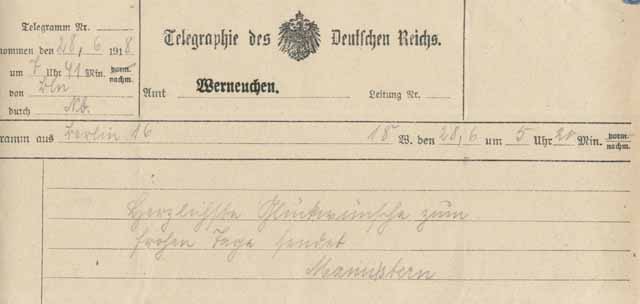 Telegramm Nr.
nommen den 28, 6 1918
um 7 Uhr 41 Min. vorm. nachm.
von Bln
durch
Telegraphie des Deutschen Reichs.
Amt Werneuchen. Leitung Nr.
ramm aus Berlin 16 18 W. den 28, 6 um 5 Uhr 20 Min. vorm. nachm.
Herzlichste Glückwünsche zum
frohen Tage sendet